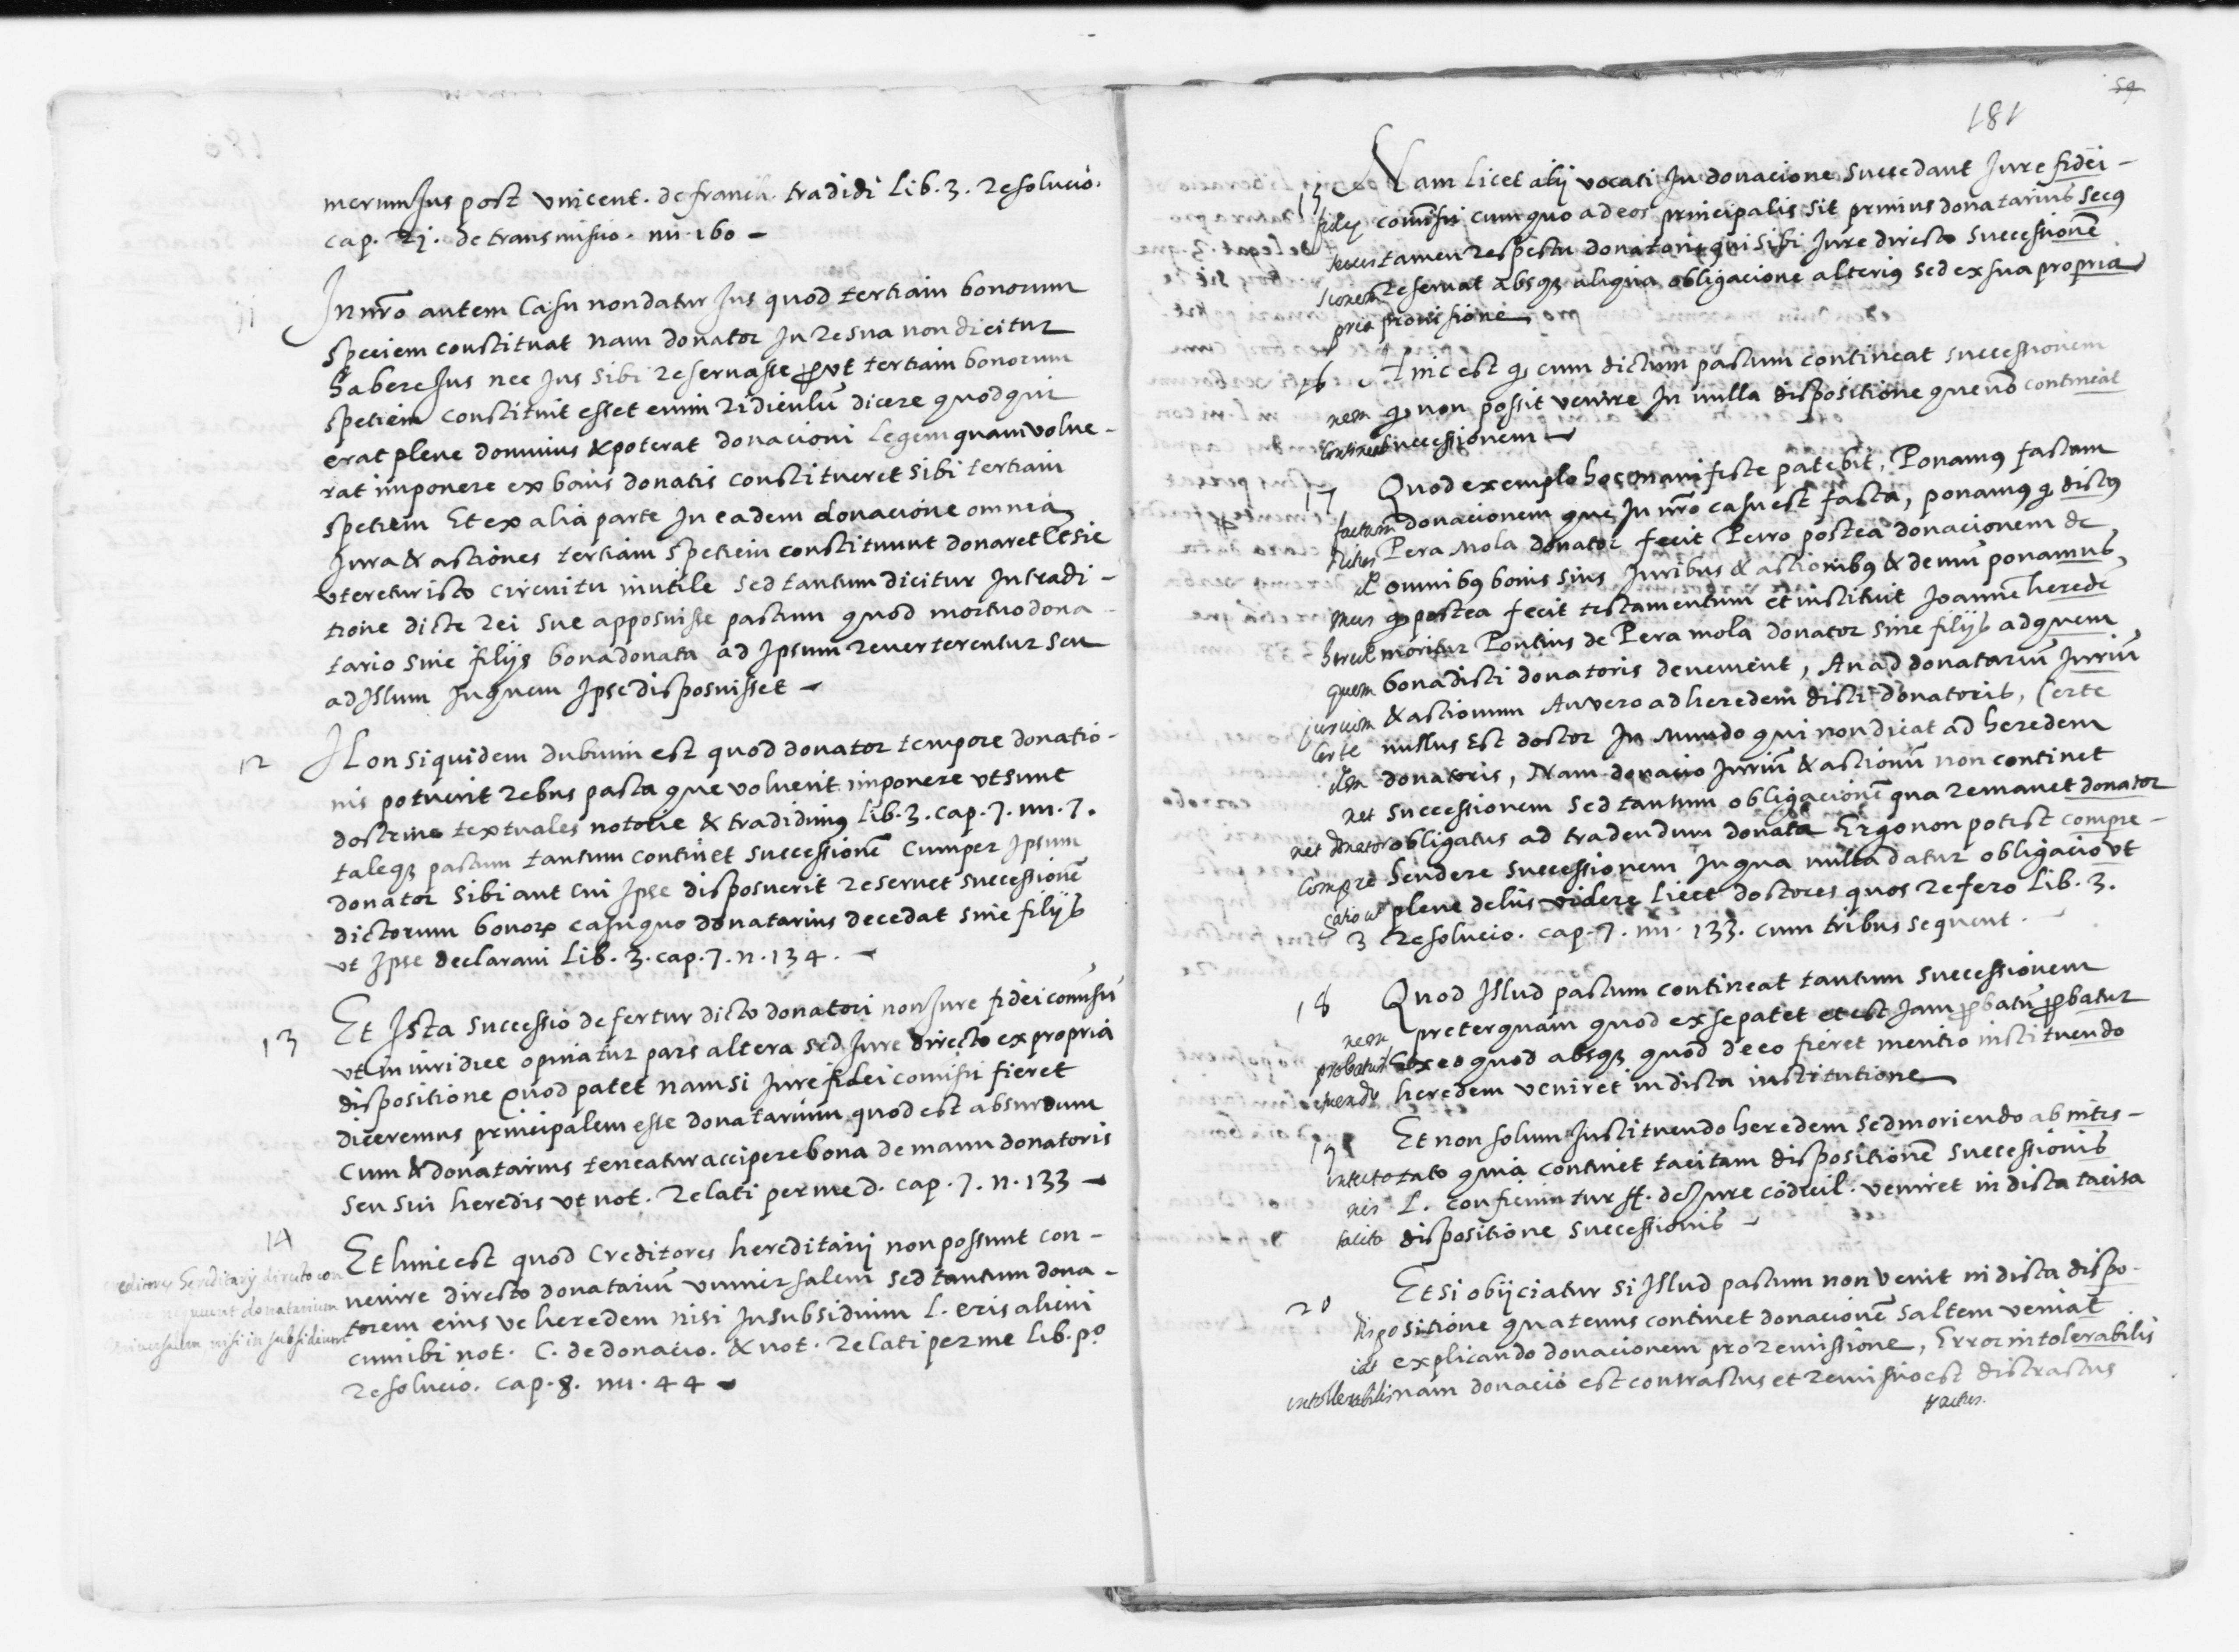 merum Jus post vincent. de franch. tradidi Lib. 3. resolucio.
cap. 21. de transmissio. nu. 160 -
11 In nr̃o autem Casu non datur Jus quod tertiam bonorum
speciem constituat nam donator In re sua non dicitur
habere Jus nec Jus sibi reservasse prout tertiam bonorum
spetiem constituit esset enim ridiculũ dicere quod qui
erat plene dominus & poterat donacioni legem quam volue-
rat imponere ex bonis donatis constitueret sibi tertiam
spetiem Et ex alia parte In eadem donacione omnia
Jura & actiones tertiam spetiem constituunt donaret Et sic
uteretur isto circuitu inutile sed tantum dicitur In tradi-
tione dicte rei sue apposuisse pactum quod mortuo dona-
tario sine filijs bona donata ad Ipsum reverterentur seu
ad Illum In quem Ipse disposuisset -
12 Non siquidem dubium est quod donator tempore donatio-
nis potuerit rebus pacta que voluerit imponere ut sunt
doctrine textuales notorie & tradidimus Lib. 3. cap. 7. nu. 7.
taleqȝ pactum tantum continet successionẽ cum per Ipsum
donator sibi aut cui Ipse disposuerit reservet successionẽ
dictorum bonorȝ casu quo donatarius decedat sine filijs
ut Ipse declaravi Lib. 3. cap. 7. n. 134. -
13 Et Ista successio defertur dicto donatori non Jure fideicomissũ
ut in iuridice opinatur pars altera sed Jure directo ex propria
dispositione quod patet nam si Jure fidei comissi fieret
diceremus principalem esse donatarium quod est absurdum
Cum & donatarius teneatur accipere bona de manu donatoris
seu sui heredis ut not. relati per me d. cap. 7. n. 133 -
14 Et hinc est quod Creditores hereditarij non possunt con-
creditores hereditarij directo con
venire directo donatariũ universalem sed tantum dona-
nequeunt donatarium
torem eius ve heredem nisi In subsidium L. eris alieni
universalem nisi in subsidium
cum ibi not. C. de donacio. & not. relati per me Lib. pº
resolucio. cap. 8. nu. 44 -
59
181
15 Nam licet alij vocati In donacione succedant Jure fidei-
fidej comissi cum quo ad eos principalis sit primus donatarius secus
secus tamen respectu donatoris qui sibi Jure directo successionẽ
sionem reservat absqȝ aliqua obligacione alterius sed ex sua propria
pria provisione
16 Hinc est qȝ cum dictum pactum contineat successionem
nem qȝ non possit venire In nulla dispositione que nõ contineat
contineat successionem -
17 Quod exemplo hoc manifeste patebit, Ponamus factam
factam donacionem que In nr̃o casu est facta, ponamus qȝ dictus
dictus Pera mola donator fecit Petro postea donacionem de
de omnibus bonis suis Juribus & actionibus & demũ ponamus
mus qȝ postea fecit testamentum et instituit Joannẽ herede
hered moritur Pontius de Pera mola donator sine filijs ad quem
quem bona dicti donatoris devenient, An ad donatariũ Juriũ
jurium & actionum An vero ad heredem dicti donatoris, Certe
Certe nullus Est doctor In Mundo qui non dicat ad heredem
dem donatoris, Nam donacio Juriũ & actionũ non continet
net successionem sed tantum obligacionẽ qua remanet donator
net donator obligatus ad tradendum donata Ergo non potest compre-
compre hendere successionem In qua nulla datur obligacio ut
gatio ut plene de his videre licet doctores quos refero Lib. 3.
3 Resolucio. cap. 7. nu. 133. cum tribus sequent.
18 Quod Illud pactum contineat tantum successionem
nem preterquam quod ex se patet et est Jam probatũ probatur
probatur Ex eo quod absqȝ quod de eo fieret mentio instituendo
tuendo heredem veniret in dicta institutione
19 Et non solum Instituendo heredem sed moriendo ab intes-
intecto tato quia continet tacitam dispositionẽ successionis
nis L. conficiuntur ff. de Jure codicil. veniret in dicta tacita
tacita dispositione successionis -
20 Et si obijciatur si Illud pactum non venit in dicta dispo-
dispo sitione quatenus continet donacionẽ saltem veniat
iat explicando donacionem pro remissione, Error intolerabilis
intollerabilis nam donacio est contractus et remissio est distractus
tractus.